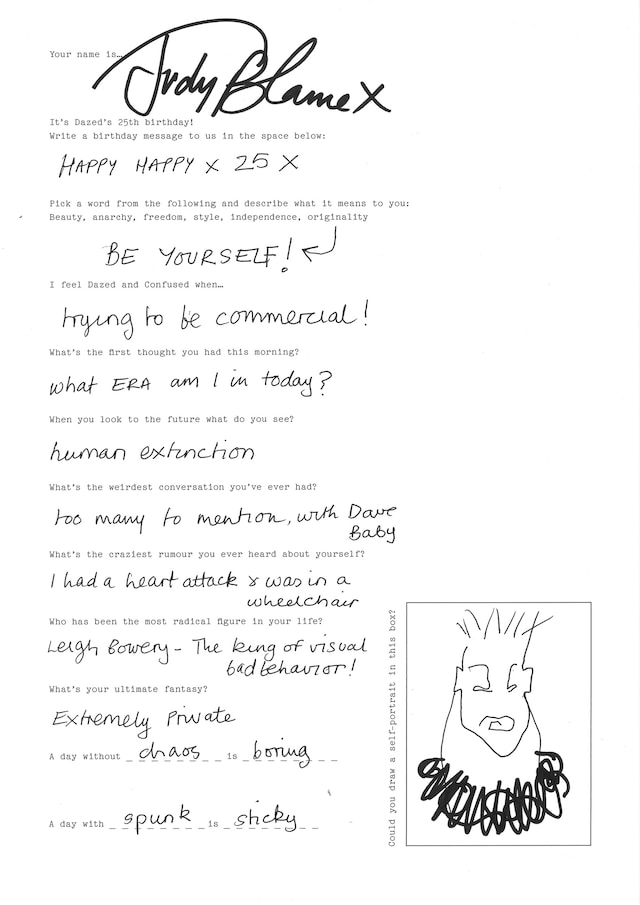 Your name is…
Judy Blame X
It's Dazed's 25th birthday!
Write a birthday message to us in the space below:
HAPPY HAPPY X 25 X
Pick a word from the following and describe what it means to you:
Beauty, anarchy, freedom, style, independence, originality
BE YOURSELF!
I feel Dazed and Confused when…
trying to be commercial!
What's the first thought you had this morning?
what ERA am I in today?
When you look to the future what do you see?
human extinction
What's the weirdest conversation you've ever had?
too many to mention, with Dave
Baby
What's the craziest rumour you ever heard about yourself?
I had a heart attack & was in a
wheelchair
Who has been the most radical figure in your life?
Leigh Bowery - The king of visual
bad behavior!
What's your ultimate fantasy?
Extremely Private
A day without chaos is boring
A day with spunk is sticky
Could you draw a self-portrait in this box?